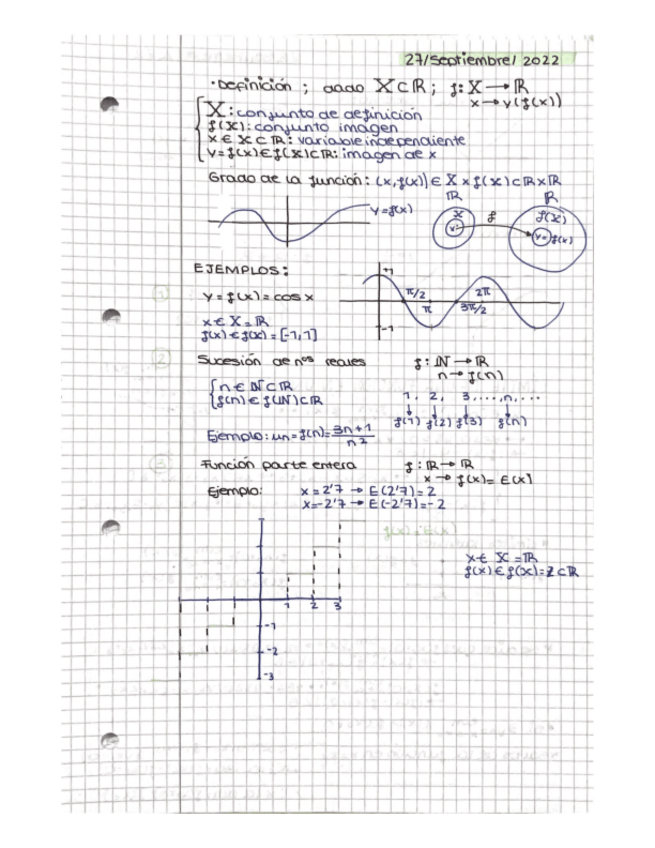 27/septiembre/2022
• Definición ; dado X⊂ℝ ; f: X → ℝ
x → y(f(x))
X: conjunto de definición
f(X): conjunto imagen
x ∈ X⊂ℝ: variable independiente
y=f(x)∈f(X)⊂ℝ: imagen de x
Grado de la función: (x,f(x)) ∈ X x f(X)⊂ℝxℝ
ℝ ℝ
y=f(x)
X f f(X)
x y= f(x)
EJEMPLOS:
+1
1
y = f(x) = cos x
π/2 π 3π/2 2π
x ∈ X = ℝ
f(x) ∈ f(X) = [-1,1]
-1
2
Sucesión de nos reales f: ℕ → ℝ
n → f(n)
n ∈ ℕ⊂ℝ
f(n) ∈ f(ℕ)⊂ℝ
1, 2, 3,...,n,...
f(1) f(2) f(3) f(n)
Ejemplo: un=f(n)= 3n+1
n2
3
Función parte entera f: ℝ → ℝ
x → f(x)= E(x)
Ejemplo: x = 2'7 → E(2'7)=2
x=-2'7 → E(-2'7)=-2
f(x)=E(x)
x ∈ X = ℝ
f(x) ∈ f(X)=Z⊂ℝ
1 2 3
-1
-2
-3